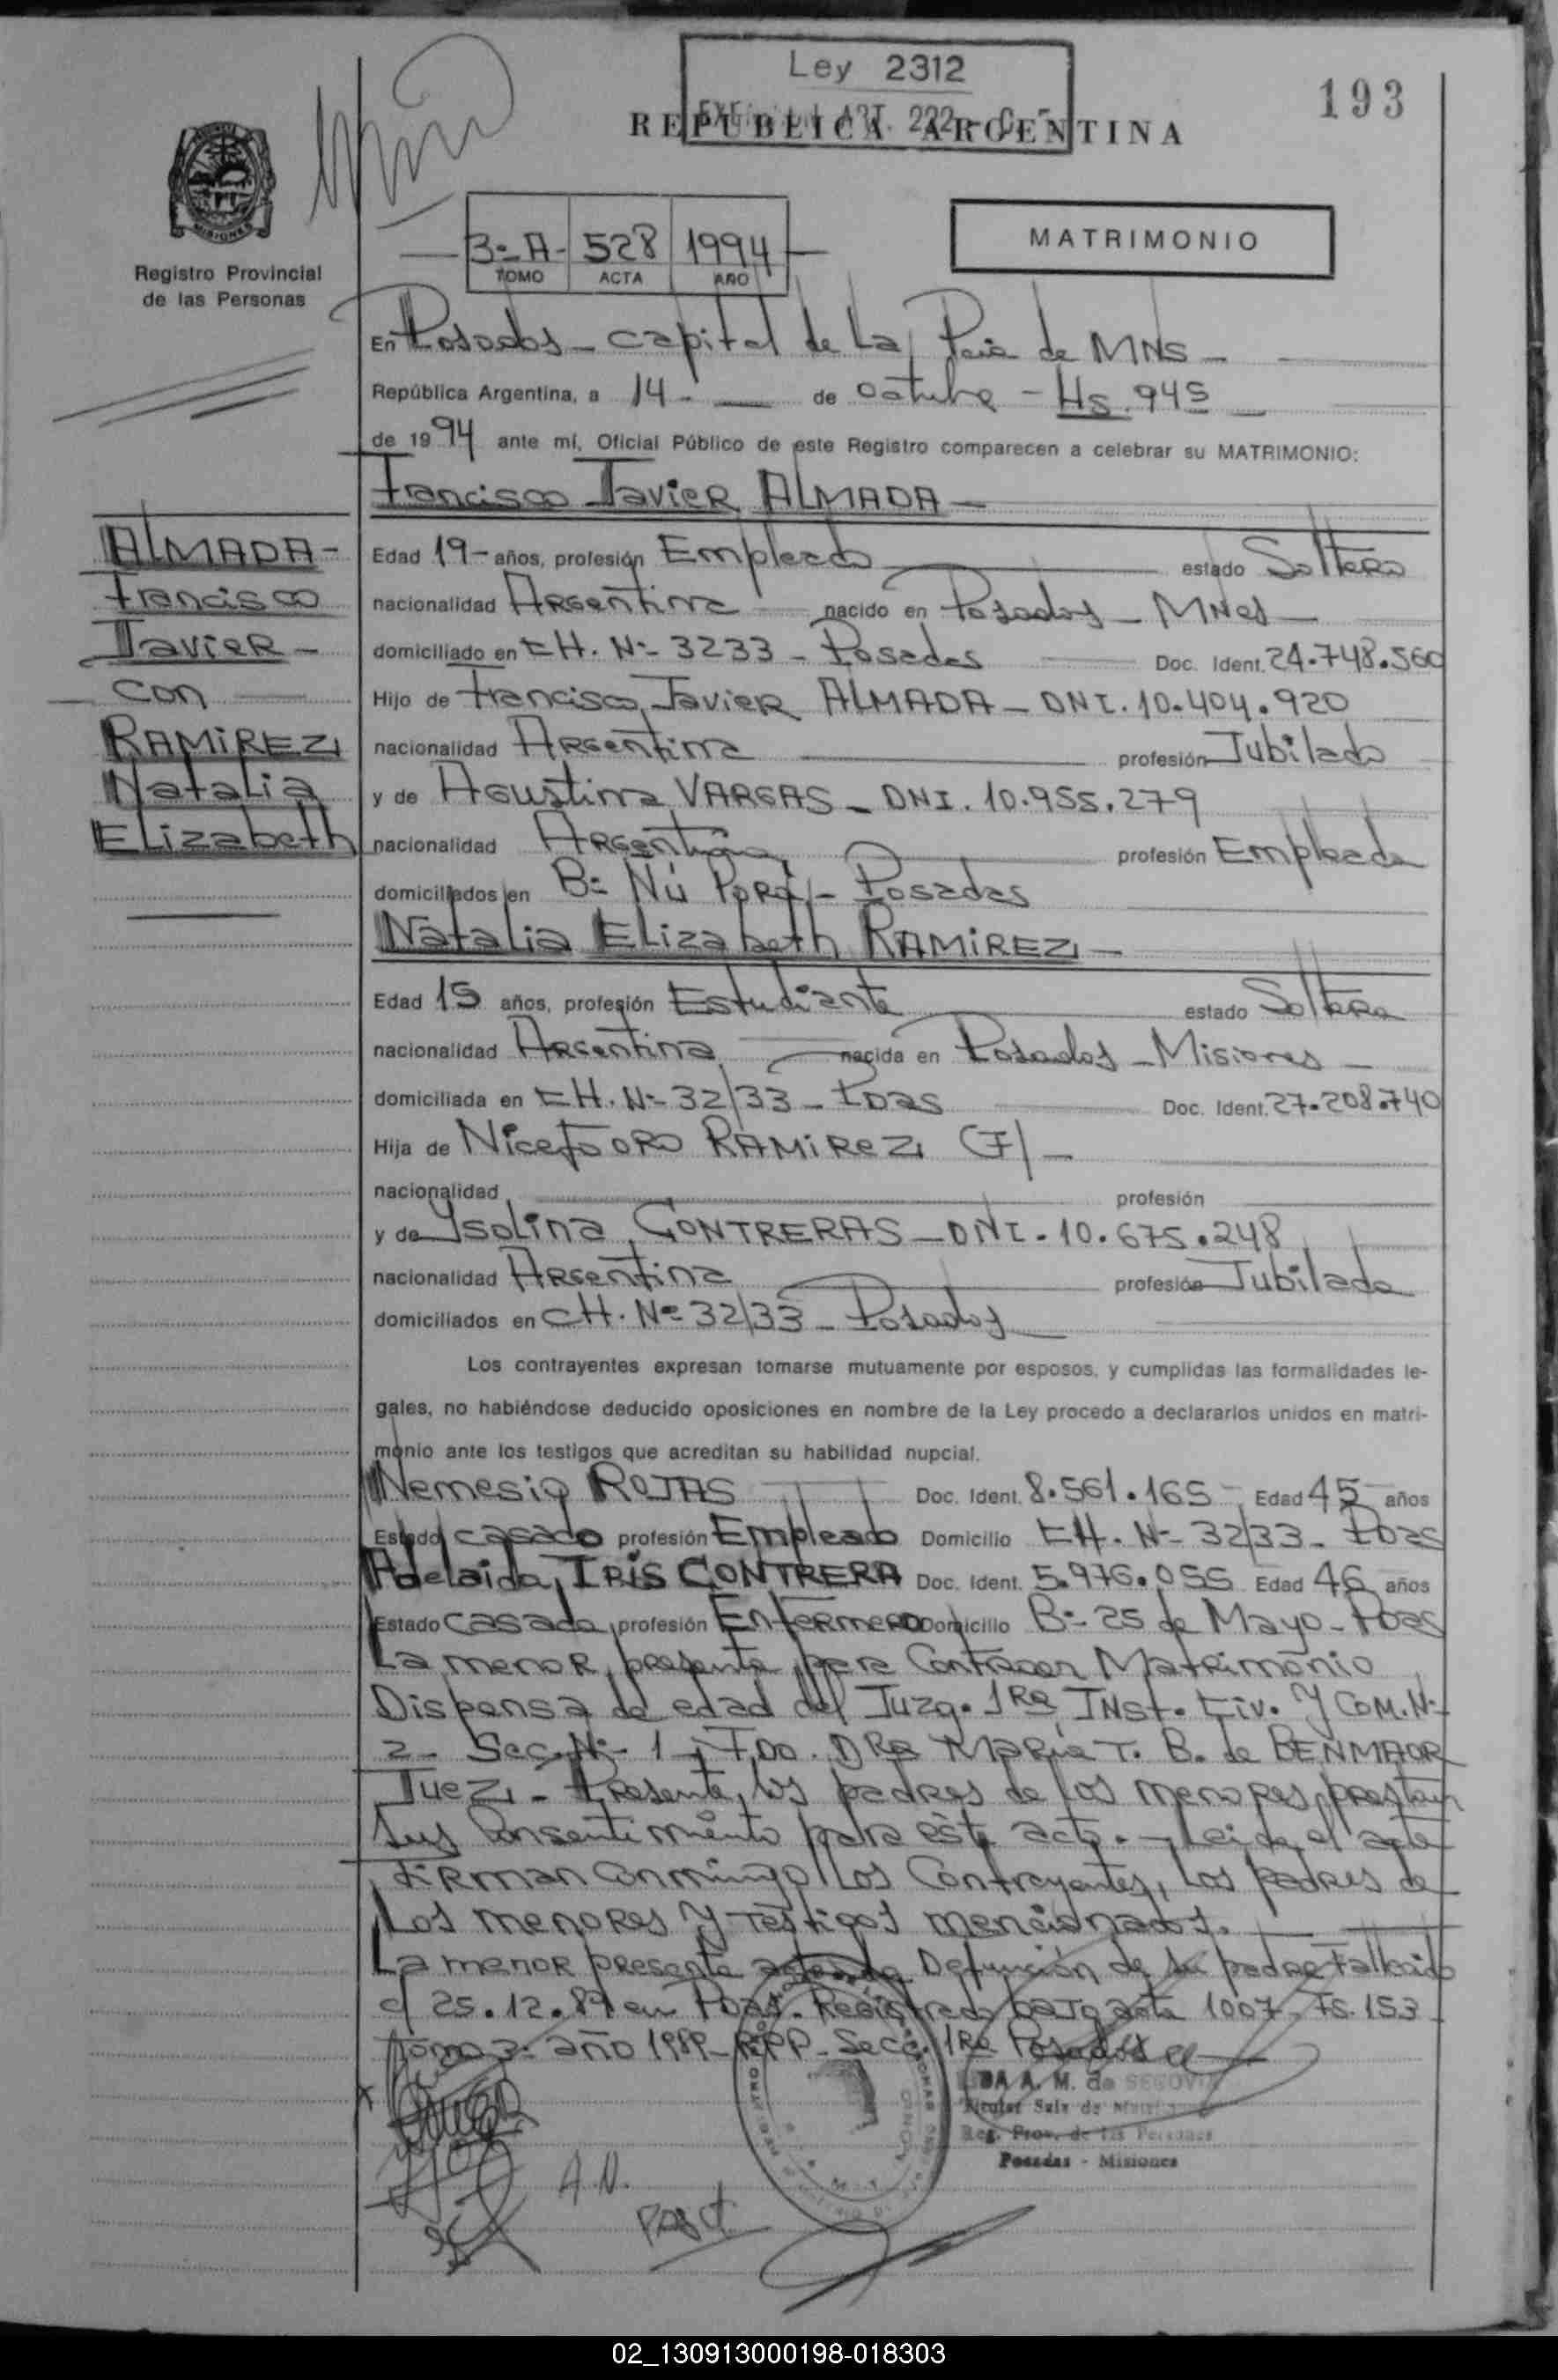 Ley 2312
193
REPUBLICA ARGENTINA
MISIONES
Registro Provincial
de las Personas
3º A- 528 1994
TOMO ACTA AÑO
MATRIMONIO
En Posadas - capital de La Pcia de MNS -
República Argentina, a 14 - de octubre - Hs. 945
de 1994 ante mí, Oficial Público de este Registro comparecen a celebrar su MATRIMONIO:
Francisco Javier ALMADA -
ALMADA -
Francisco
Javier -
con
RAMIREZ
Natalia
Elizabeth
Edad 19 - años, profesión Empleado estado Soltero
nacionalidad Argentina nacido en Posadas - MNes -
domiciliado en CH. Nº 3233 - Posadas Doc. Ident. 24.748.560
Hijo de Francisco Javier ALMADA - DNI. 10.404.920
nacionalidad Argentina profesión Jubilado
y de Agustina VARGAS - DNI. 10.955.279
nacionalidad Argentina profesión Empleada
domiciliados en Bº Ñú Porá - Posadas
Natalia Elizabeth RAMIREZ -
Edad 15 años, profesión Estudiante estado Soltera
nacionalidad Argentina nacida en Posadas - Misiones -
domiciliada en CH. Nº 32/33 - Pdas Doc. Ident. 27.208.740
Hija de Niceforo RAMIREZ (F) -
nacionalidad profesión
y de Ysolina CONTRERAS - DNI. 10.675.248
nacionalidad Argentina profesión Jubilada
domiciliados en CH. Nº 32/33 - Posadas
Los contrayentes expresan tomarse mutuamente por esposos, y cumplidas las formalidades le-
gales, no habiéndose deducido oposiciones en nombre de la Ley procedo a declararlos unidos en matri-
monio ante los testigos que acreditan su habilidad nupcial.
Nemesio ROJAS Doc. Ident. 8.561.165 - Edad 45 años
Estado casado profesión Empleado Domicilio CH. Nº 32/33 - Pdas
Adelaida IRIS CONTRERA Doc. Ident. 5.976.055 Edad 46 años
Estado casada profesión Enfermera Domicilio Bº 25 de Mayo - Pdas
La menor presenta para Contraer Matrimonio
Dispensa de edad del Juzg. 1Ra INst. Civ. y COM. Nº
2 - Sec. Nº 1 - FDO. DRa Maria T. B. de BENMAOR
Juez - Presente los padres de los menores prestan
sus Consentimiento para éste acto. - Leida el acta
firman conmigo los Contrayentes, los padres de
Los menores y testigos mencionados.
La menor presenta acta de Defunción de su padre Fallecido
el 25.12.89 en Pdas. Registrada bajo acta 1007 - Fs. 153
tomo 3º año 1989 - RPP - Secc. 1Ra Posadas
A. M. de SEGOVIA
Titular
Reg. Prov. de las Personas
Posadas - Misiones
A.N.
02_130913000198-018303